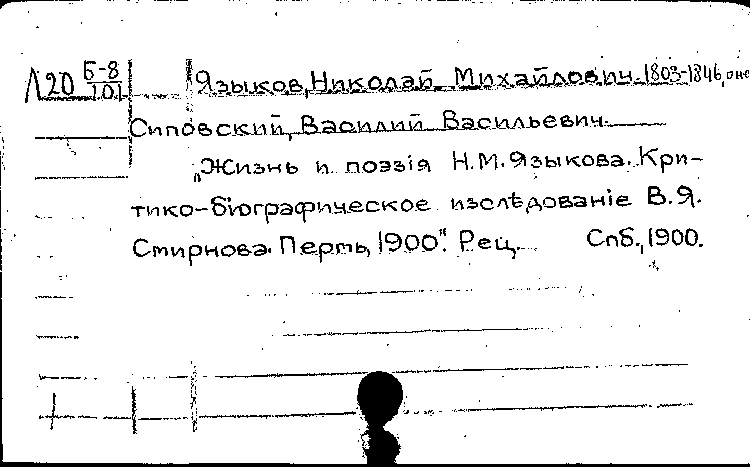 Л20 Б-8/101 Языков, Николай Михайлович. 1803-1846, о нем
Сиповский, Василий Васильевич.
„Жизнь и поэзія Н.М. Языкова. Кри-
тико-біографическое изслѣдованіе В.Я.
Смирнова. Пермь, 1900". Рец. Спб., 1900.